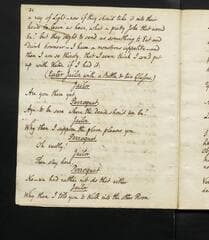 a ray of Light. now if they should take it into their
heads to leave us here, what a pretty Joke that would
be! but they ought to send us something to Eat and
drink however. I have a marvelous appetite and
then I am so thirsty, that I even think I could put
up with Water if I had it.
(Enter Jailor with a Bottle & two Glasses)
Jailor
Are you there yet
Perroquet
Aye to be sure where the deuce should we be
Jailor
Why then I suppose the place pleases you
Perroquet
Oh vastly
Jailor
Then stay here
Perroquet
No we had rather not do that either
Jailor
Why then I told you to Walk into the other Room